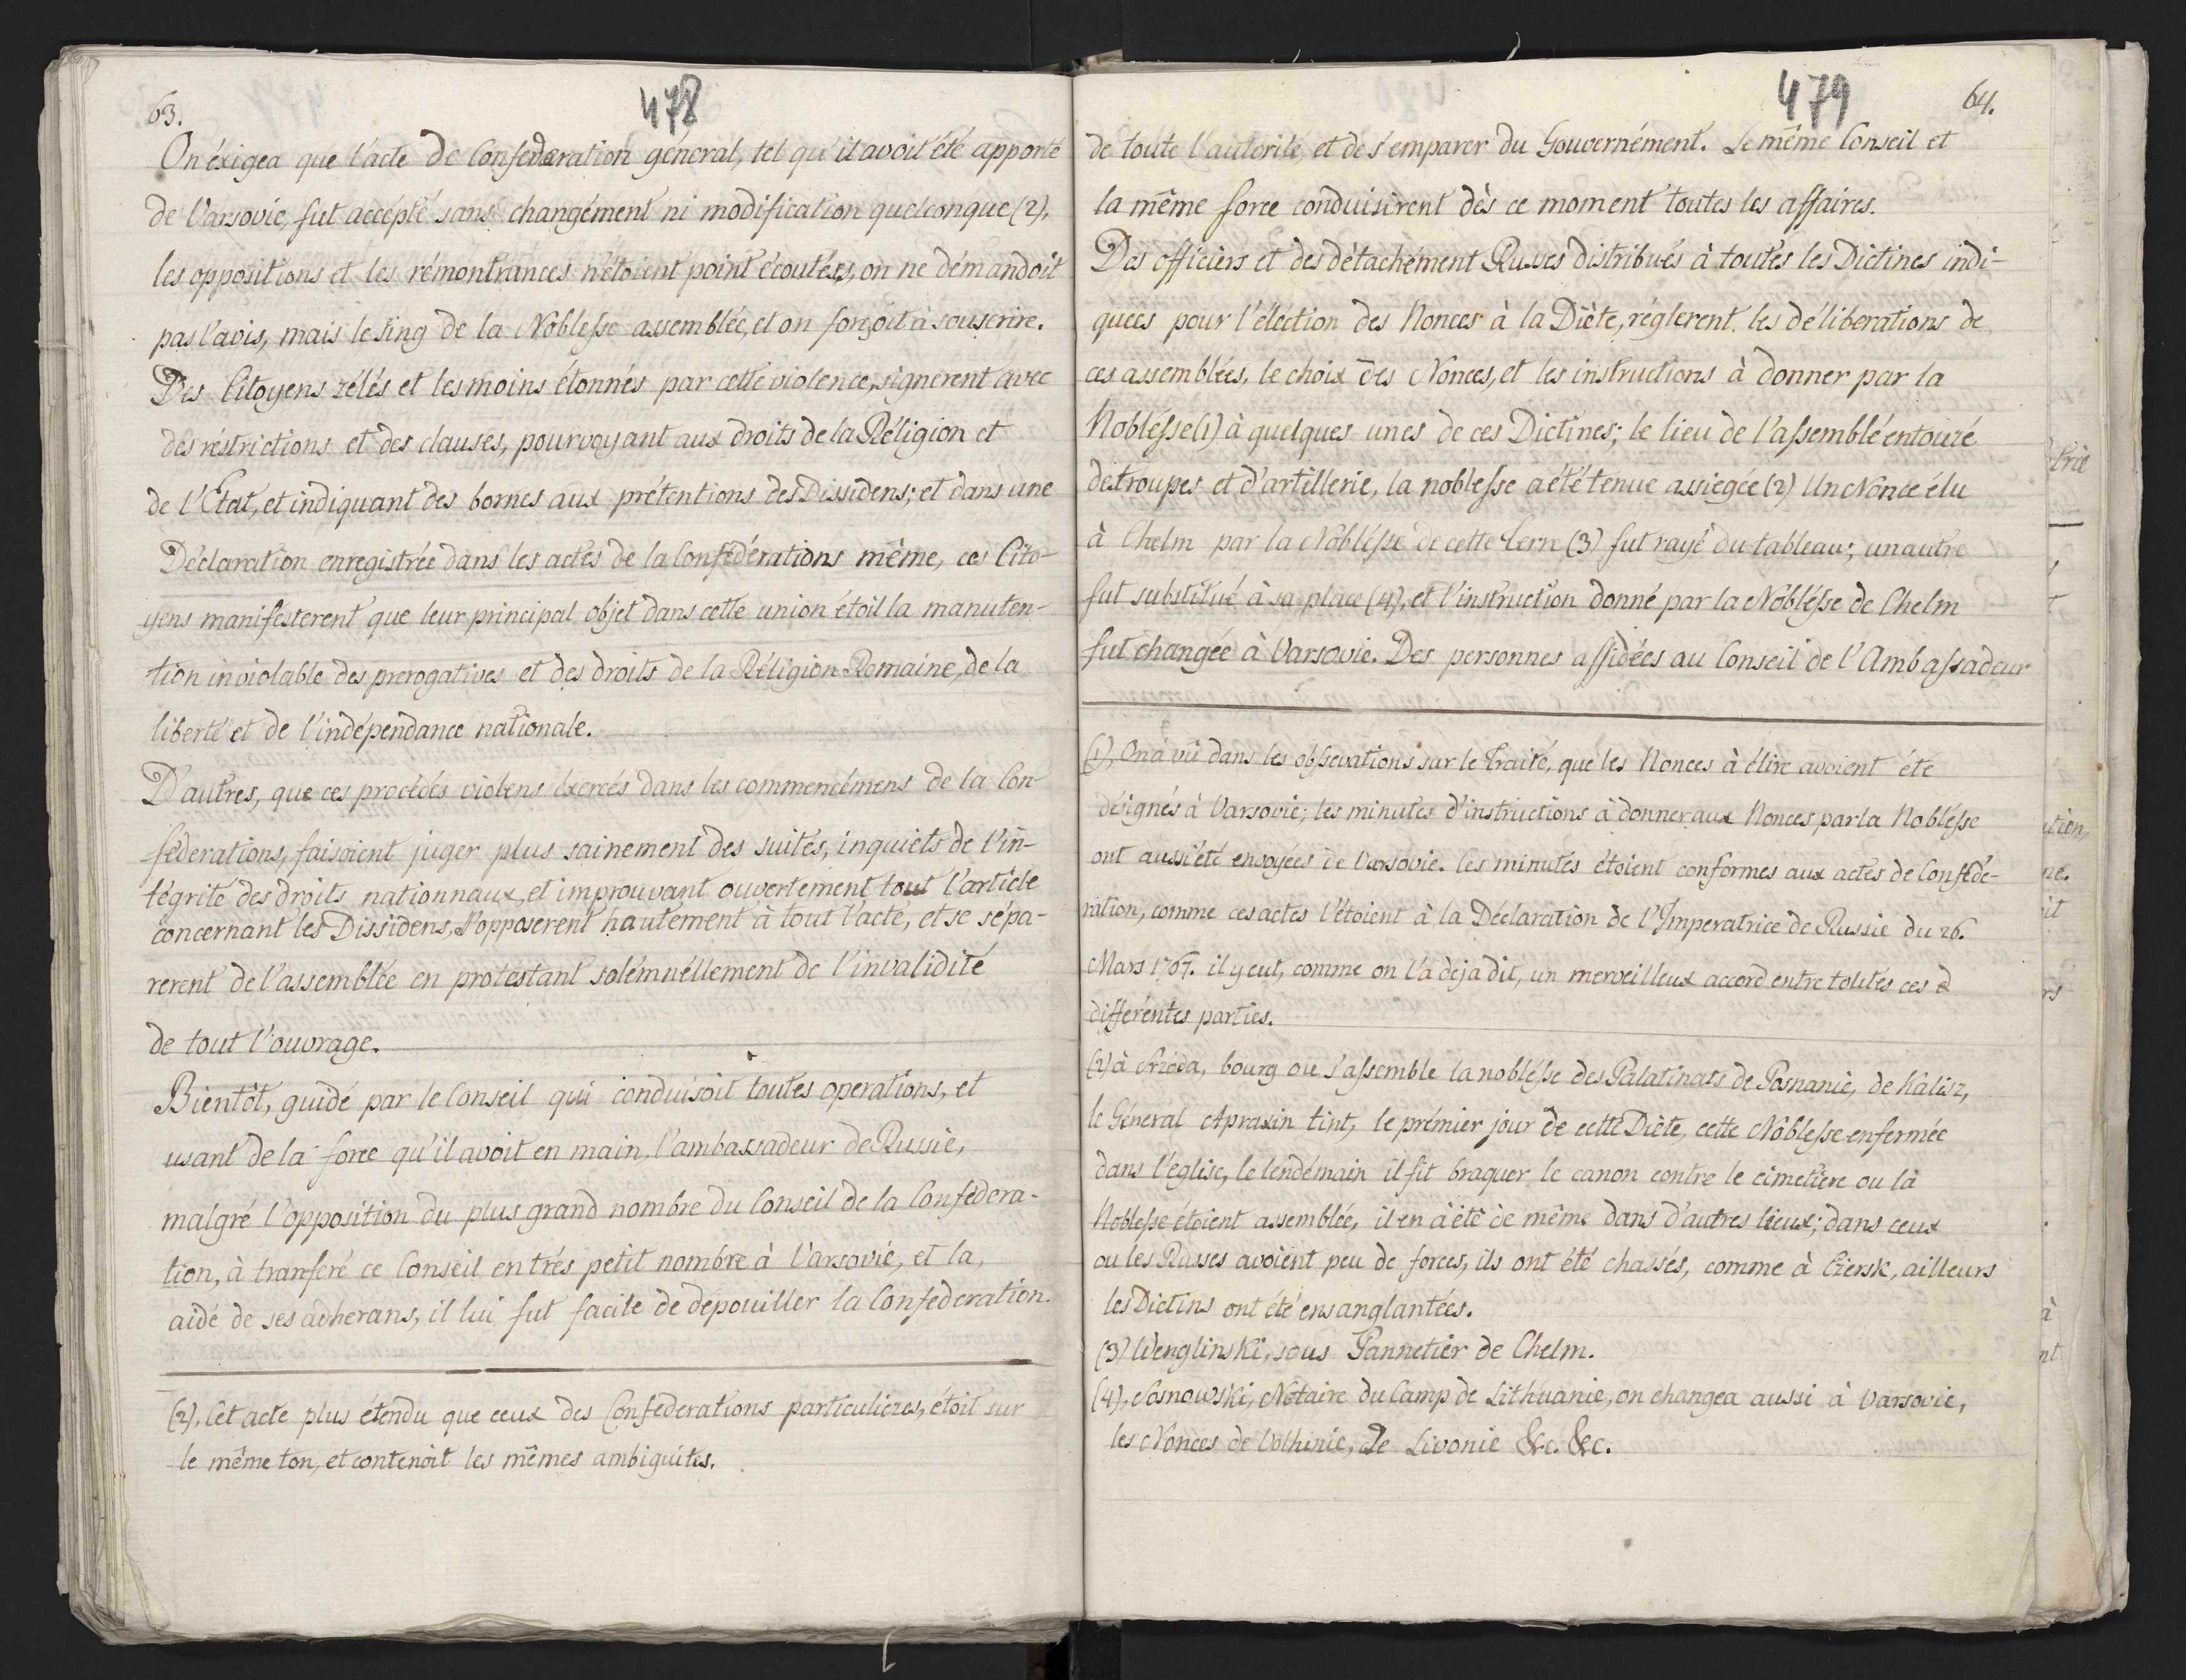 63.
478
On éxigea que l'acte de Confederation géneral, tel qu'il avoit été apporté
de Varsovie, fut accépté sans changément ni modification quelconque (2),
les oppositions et les rémontrances n'étoient point écoutées, on ne démandoit
pas l'avis, mais le sing de la Noblesse assemblée, et on forçoit à souscrire.
Des Citoyens zélés et les moins étonnés par cette violence, signerent avec
des réstrictions et des clauses, pourvoyant aux droits de la Réligion et
de l'État, et indiquant des bornes aux prétentions des Dissidens; et dans une
Déclaration enregistrée dans les actes de la Confédérations même, ces Cito-
yens manifesterent que leur principal objet dans cette union étoit la manuten-
tion inviolable des prerogatives et des droits de la Réligion Romaine, de la
liberté et de l'indépendance nationale.
D'autres, que ces procédés violens éxercés dans les commencémens de la Con-
féderations, faisoient juger plus sainement des suites, inquiets de l'in-
tégrité des droits nationnaux, et improuvant ouvertement tout l'article
concernant les Dissidens, s'opposerent hautément à tout l'acte, et se sépa-
rerent de l'assemblée en protéstant solémnéllement de l'invalidité
de tout l'ouvrage.
Bientôt, guidé par le Conseil qui conduisoit toutes operations, et
usant de la force qu'il avoit en main, l'ambassadeur de Russie,
malgré l'opposition du plus grand nombre du Conseil de la Confédera-
tion, à tranferé ce Conseil en trés petit nombre à Varsovie, et la,
aidé de ses adherans, il lui fut facile de dépouiller la Conféderation.
(2), Cet acte plus étendu que ceux des Conféderations particulieres, étoit sur
le même ton, et contenoit les mêmes ambiguites.
479
64.
de toute l'autorité, et de s'emparer du Gouvernément. Le même Conseil et
la même force conduisirent dès ce moment toutes les affaires.
Des officiers et des détachément Russes distribués à toutes les Diétines indi-
quées pour l'élection des Nonces à la Diète, réglerent les déliberations de
ces assemblées, le choix des Nonces, et les instructions à donner par la
Noblésse (1) à quelques unes de ces Diétines; le lieu de l'assemblé entouré
de troupes et d'artillerie, la noblesse a été tenue assiegée (2) Un Nonce élu
à Chelm par la Noblésse de cette Terre (3) fut rayé du tableau; un autre
fut substitué à sa place (4), et l'instruction donné par la Noblésse de Chelm
fut changée à Varsovie. Des personnes affidées au Conseil de l'Ambassadeur
(1), On a vû dans les obsevations sur le Traité, que les Nonces à élire avoient été
désignés à Varsovie; les minutes d'instructions à donner aux Nonces par la Noblésse
ont aussi été envoyées de Varsovie. les minutes étoient conformes aux actes de Conféde-
ration, comme ces actes l'étoient à la Déclaration de l'Imperatrice de Russie du 26.
Mars 1767. il y eut, comme on l'a deja dit, un merveilleux accord entre toutes ces
différentes parties.
(2) à Srzoda, bourg ou s'assemble la noblésse des Palatinats de Posnanie, de Kalisz,
le Géneral Apraxin tint, le prémier jour de cette Diète, cette Noblesse enfermée
dans l'église, le lendémain il fit braquer le canon contre le cimetiere ou la
Noblesse étoient assemblée, il en a été de même dans d'autres lieux; dans ceux
ou les Russes avoient peu de forces, ils ont été chassés, comme à Czersk, ailleurs
les Diétins ont été ensanglantées.
(3) Wenglinski, sous Pannetier de Chelm.
(4), Sosnowski, Notaire du Camp de Lithuanie, on changea aussi à Varsovie,
les Nonces de Volhinie, De Livonie &c. &c.